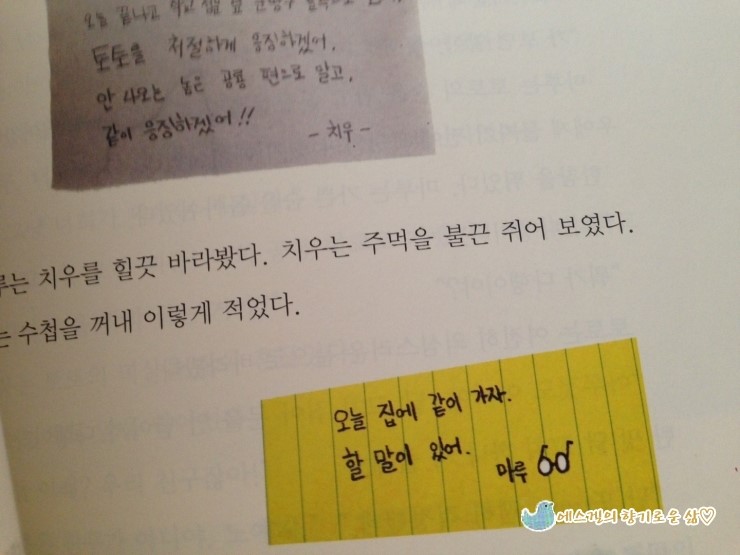 오늘 끝나고
토토을 처절하게 응징하겠어.
안 나오는 높은 공룡 편으로 말고,
같이 응징하겠어!!
- 치우 -
루는 치우를 힐끗 바라봤다. 치우는 주먹을 불끈 쥐어 보였다.
는 수첩을 꺼내 이렇게 적었다.
오늘 집에 같이 가자.
할 말이 있어.
마루
에스겔의 향기로운 삶♡